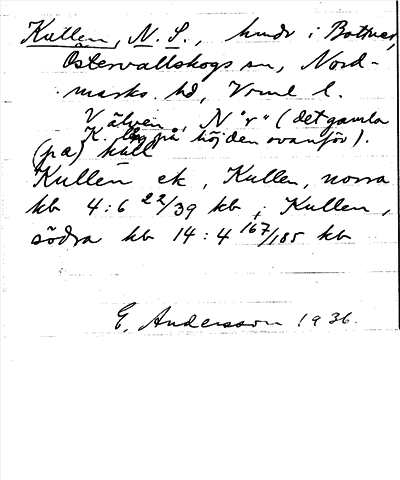 Kullen, N. S., hmdr i Bottnen,
Östervallskogs sn, Nord-
marks hd, Vrml l.
V älven, N "r" (det gamla
K. låg på höjden ovanför).
(pa) kull
Kullen ek, Kullen, norra
kb 4:6 22/39 kb, Kullen,
södra kb 14:4 167/185 kb
E. Andersson 1936.